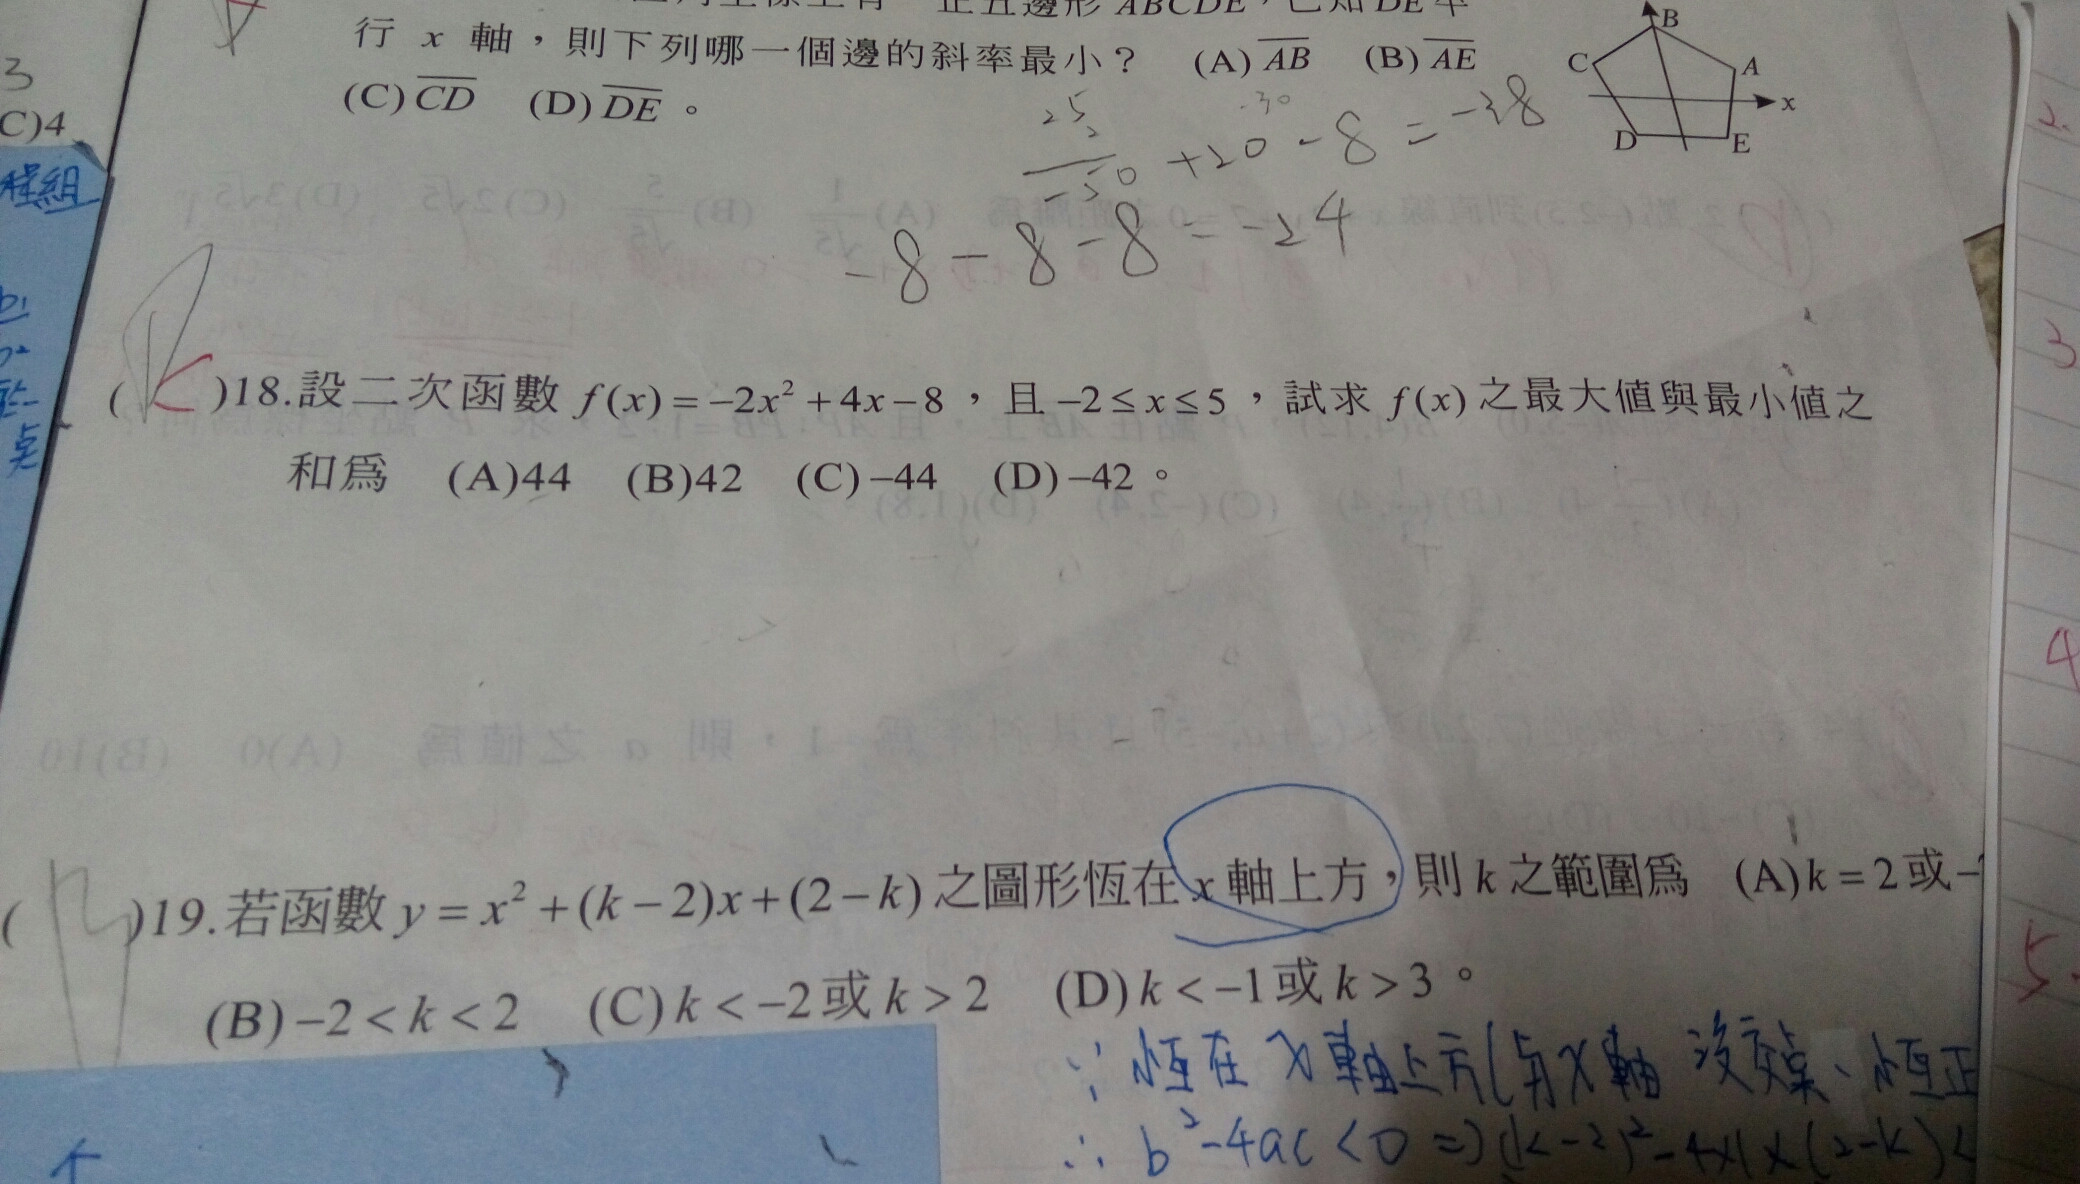 正五邊形 ABCDE,已知 DE 平
行 x 軸,則下列哪一個邊的斜率最小? (A) AB (B) AE
(C) CD (D) DE 。
B
C
A
x
D
E
3
C)4
25
-50 +20 -8 = -38
-30
-8-8-8=-24
( )18.設二次函數 f(x) = -2x² + 4x - 8 ,且 -2 ≤ x ≤ 5 ,試求 f(x) 之最大值與最小值之
和為 (A)44 (B)42 (C) -44 (D) -42 。
( )19.若函數 y = x² + (k - 2)x + (2 - k) 之圖形恆在 x 軸上方,則 k 之範圍為 (A)k = 2 或 -
(B) -2 < k < 2 (C) k < -2 或 k > 2 (D) k < -1 或 k > 3 。
∵ 恆在 x 軸上方(與 x 軸 沒交點、恆正
∴ b²-4ac < 0 => (k-2)²-4x1x(2-k)<
2.
3
4
5.